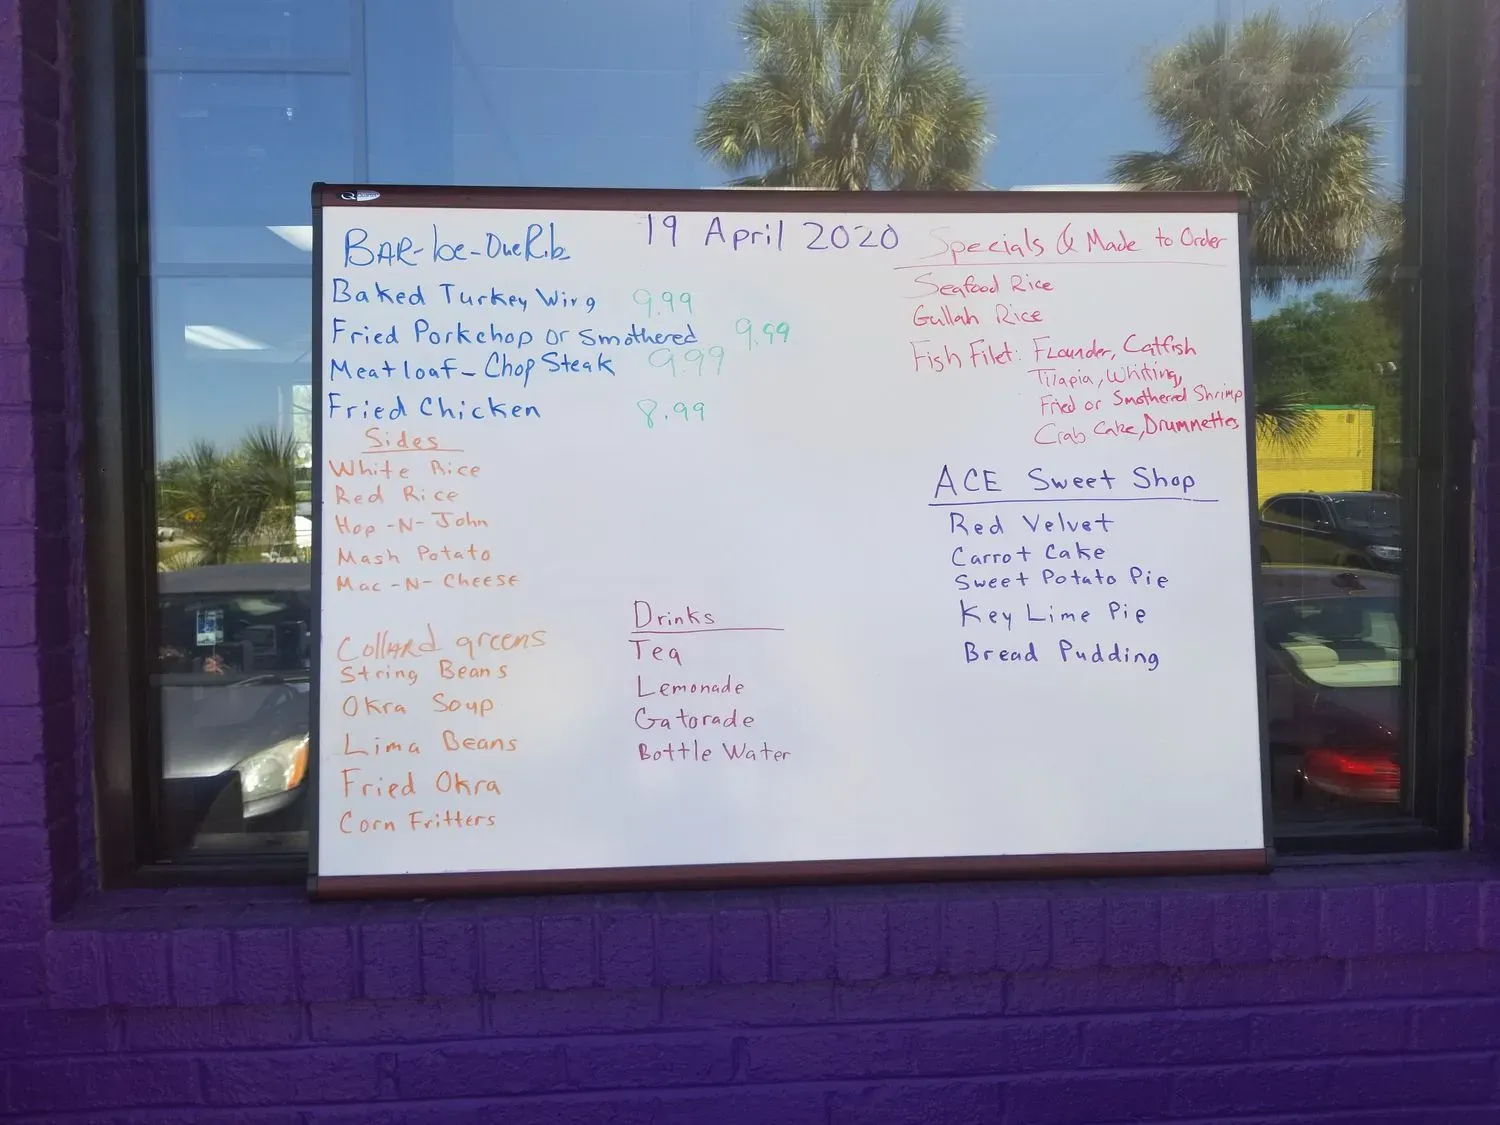 19 April 2020
BAR-be-Que Rib
Baked Turkey Wing 9.99
Fried Porkchop or Smothered 9.99
Meatloaf-Chop Steak 9.99
Fried Chicken 8.99
Sides
White Rice
Red Rice
Hop-N-John
Mash Potato
Mac-N-Cheese
Collard greens
String Beans
Okra Soup
Lima Beans
Fried Okra
Corn Fritters
Drinks
Tea
Lemonade
Gatorade
Bottle Water
Specials & Made to Order
Seafood Rice
Gullah Rice
Fish Filet: Flounder, Catfish
Tilapia, Whiting,
Fried or Smothered Shrimp
Crab Cake, Drummettes
ACE Sweet Shop
Red Velvet
Carrot Cake
Sweet Potato Pie
Key Lime Pie
Bread Pudding